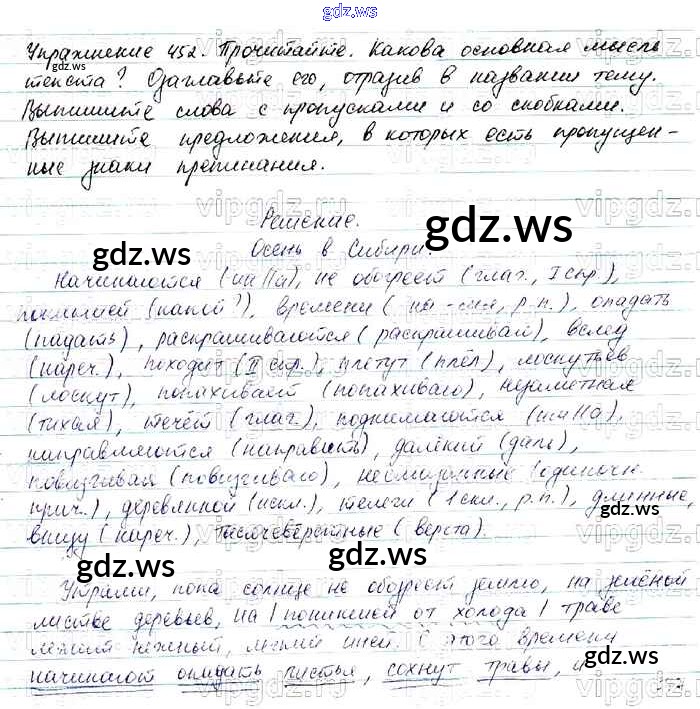 gdz.ws
Упражнение 452. Прочитайте. Какова основная мысль
gdz.ws
текста? Озаглавьте его, отразив в названии тему.
Выпишите слова с пропусками и со скобками.
Выпишите предложения, в которых есть пропущен-
ные знаки препинания.
Решение.
gdz.ws
gdz.ws
Осень в Сибири.
Начинаются (на||а), не обогреет (глаг., I спр.),
(какой?), времени (на -мя, р.п.), опадать
(падать), раскрашиваются (раскрашивай), вслед
(нареч.), походит (II спр.), плетут (плёл), лоскутьев
(лоскут), попахивает (попахиваю), незаметная
(тихая), течёт (глаг.), поднимаются (на||а),
направляются (направить), далёкий (даль),
повизгивая (повизгиваю), несмазанные (одиночн.
прич.), деревянной (искл.), телеги (1 скл., р.п.), длинные,
внизу (нареч.), тысячевёрстные (верста).
gdz.ws
gdz.ws
Утрами, пока солнце не обогреет землю, на зелёной
листве деревьев, на | поникшей от холода | траве
лежит нежный, легкий иней. С этого времени
начинают опадать листья, сохнут травы, и
gdz.ws
gdz.ws
vipgdz.ru